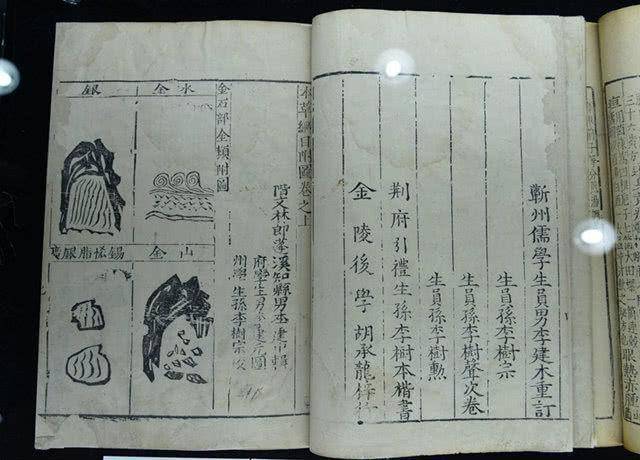 蘄州儒學生員男李建木重訂
生員孫李樹宗
生員孫李樹聲次卷
生員孫李樹勳
荊府引禮生孫李樹本楷書
金陵後學胡承龍梓行
本草綱目附圖卷之上
階文林郎蓬溪知縣男李建中輯
府學生男李建元圖
州學生孫李樹宗校
金石部金類附圖
水金
銀
山金
錫悋脂銀礦